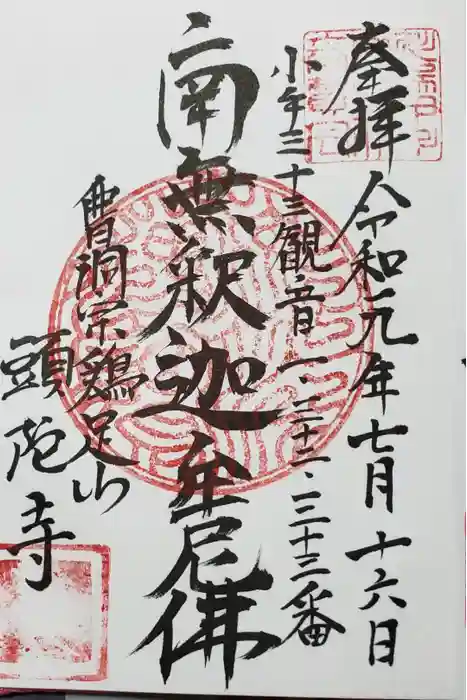 奉拝
令和元年七月十六日
小年三十三観音 一、二十二、三十三番
南無釈迦牟尼佛
曹洞宗鶏足山
頭陀寺